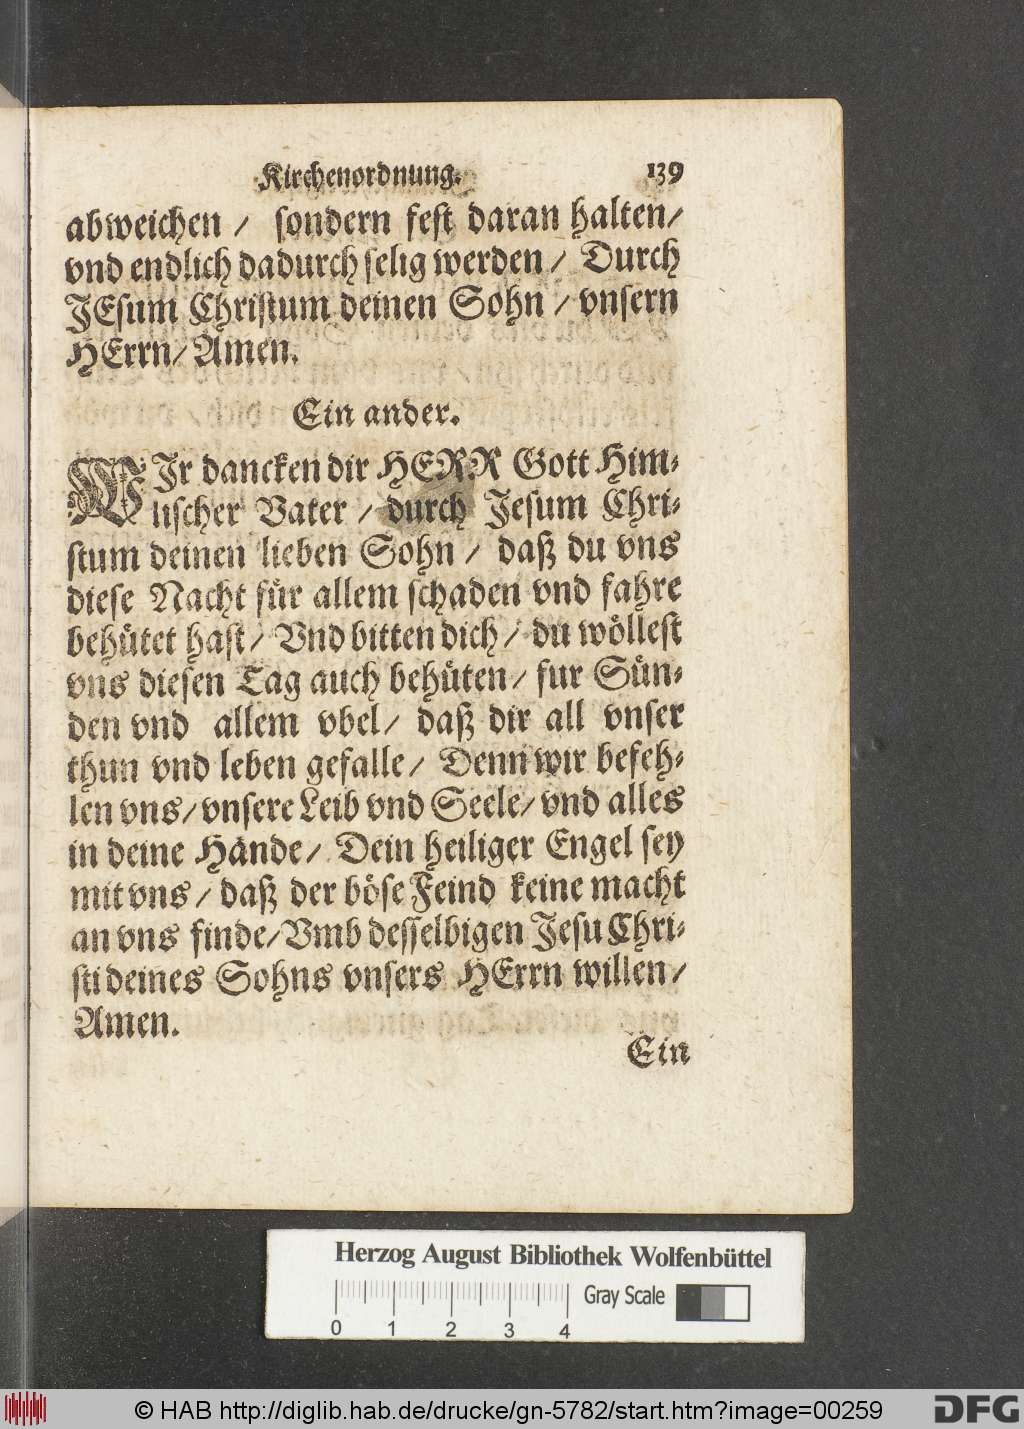 Kirchenordnung. 139
abweichen / sondern fest daran halten/
vnd endlich dadurch selig werden / Durch
JEsum Christum deinen Sohn / vnsern
HErrn/ Amen.
Ein ander.
WJr dancken dir HERR Gott Him-
lischer Vater / durch Jesum Chri-
stum deinen lieben Sohn / daß du vns
diese Nacht für allem schaden vnd fahre
behütet hast/ Vnd bitten dich/ du wöllest
vns diesen Tag auch behüten/ fur Sün-
den vnd allem vbel/ daß dir all vnser
thun vnd leben gefalle/ Denn wir befeh-
len vns/ vnsere Leib vnd Seele/ vnd alles
in deine Hände/ Dein heiliger Engel sey
mit vns/ daß der böse Feind keine macht
an vns finde/ Vmb desselbigen Jesu Chri-
sti deines Sohns vnsers HErrn willen/
Amen.
Ein
Herzog August Bibliothek Wolfenbüttel
Gray Scale
0 1 2 3 4
© HAB http://diglib.hab.de/drucke/gn-5782/start.htm?image=00259
DFG